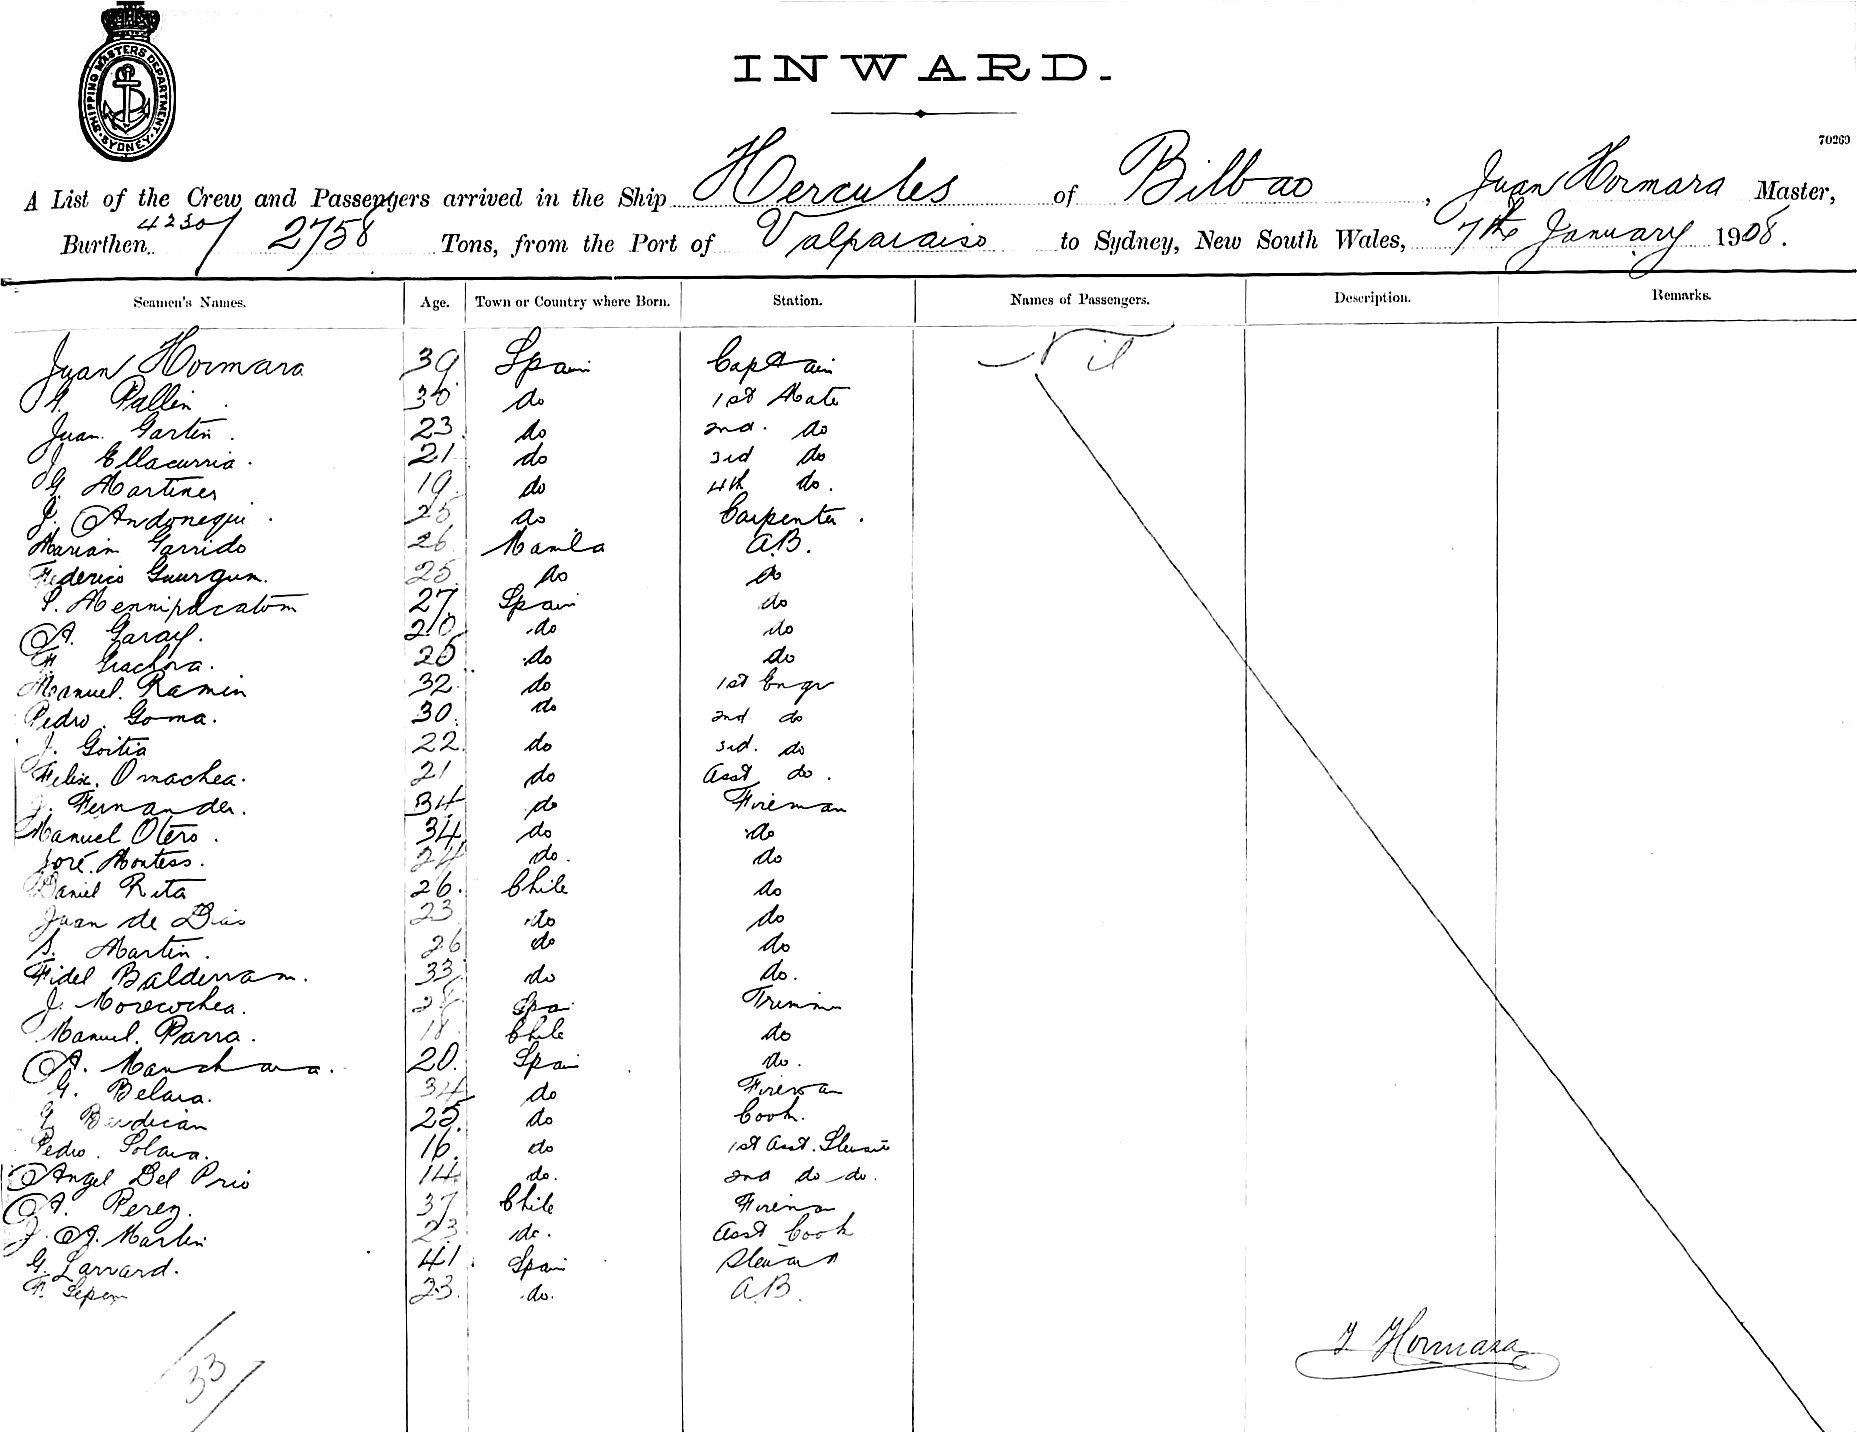 SHIPPING MASTERS DEPARTMENT. SYDNEY.
INWARD.
70269
A List of the Crew and Passengers arrived in the Ship Hercules of Bilbao, Juan Hormara Master,
Burthen 4230/2758 Tons, from the Port of Valparaiso to Sydney, New South Wales, 7th January 1908.
Seamen's Names. Age. Town or Country where Born. Station. Names of Passengers. Description. Remarks.
Juan Hormara 39 Spain Captain Nil
Pallin do 1st Mate
Juan Gartin 23 do 2nd. do
J Ellacurria. 21 do 3rd do
G. Martines 19 do 4th do.
J. Andonegui. 25 do Carpenter.
Marian Garrido 26 Manila A.B.
Federico 25 do do
27 Spain do
A. Garay. 20 do do
F. do do
Manuel Ramin 32 do 1st Engr
Pedro Goma. 30 do 2nd do
J. Goitia 22 do 3rd. do
Felix Omachea. 21 do Asst do.
J. Fernander. 34 do Fireman
Manuel Otero. 34 do do
José Montess. 24 do. do
Daniel Rita 26. Chile do
Juan de Dias 23 do do
S. Martin. 26 do do
Fidel Balderram. 33 do do.
J. Morecochea. Spai Trimm
Manuel Parra. 18 Chile do
A. 20. Spai do.
G. Belara. 34 do Fireman
G 25. do Cook.
Pedro Solara. 16. do 1st Asst. Steward
Angel Del Prio 14 do. 2nd do do.
A. Perez. 37 Chile Firema
J. A. Martin 23 do. Asst Cook
G. Larrard. 41 Spain Steward
F. 23. do. A.B.
33
J Hormaza